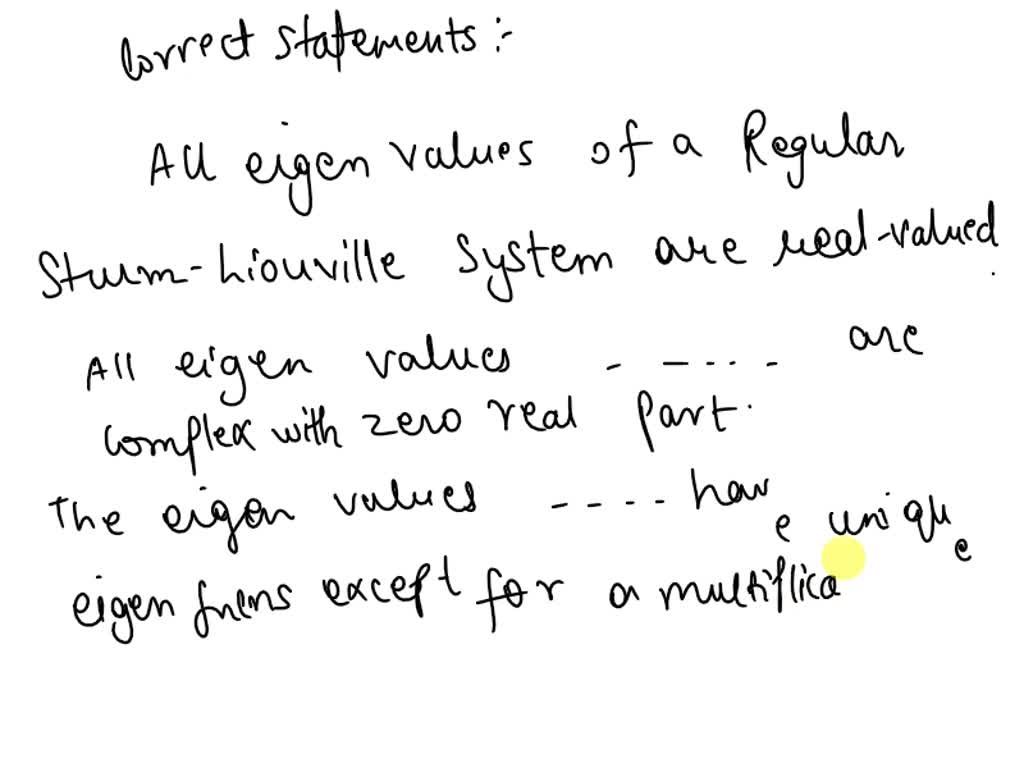 Correct statements:-
All eigen values of a Regular
Sturm-Liouville System are real-valued.
All eigen values - - . . . are
complex with zero real part.
The eigen values - - - - have unique
eigen fncns except for a multiplica